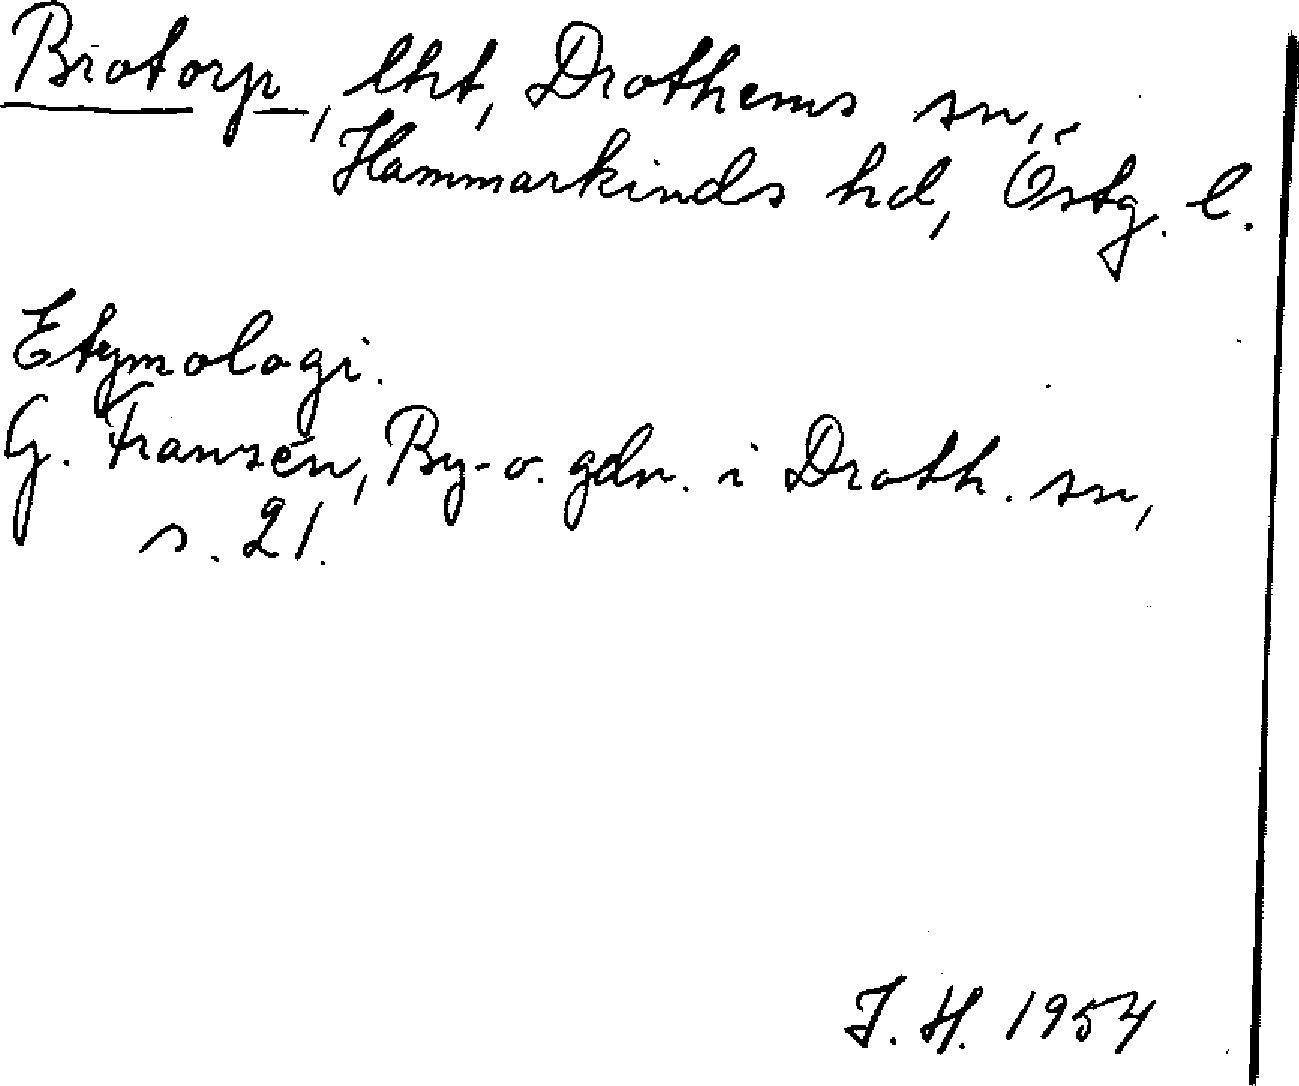 Brotorp, lht, Drothems sn,
Hammarkinds hd, Östg. l.
Etymologi.
G. Franzén, By- o. gdn. i Droth. sn,
s. 21.
J. H. 1954